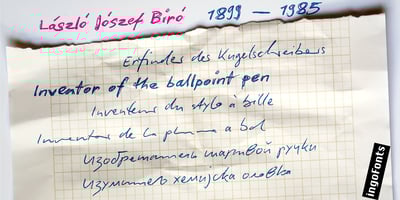 László József Bíró 1899 – 1985
Erfinder des Kugelschreibers
Inventor of the ballpoint pen
Inventeur du stylo à bille
Inventor de la pluma a bol
Изобретатель шаровой ручки
Изумитељ хемијска оловка
ingoFonts